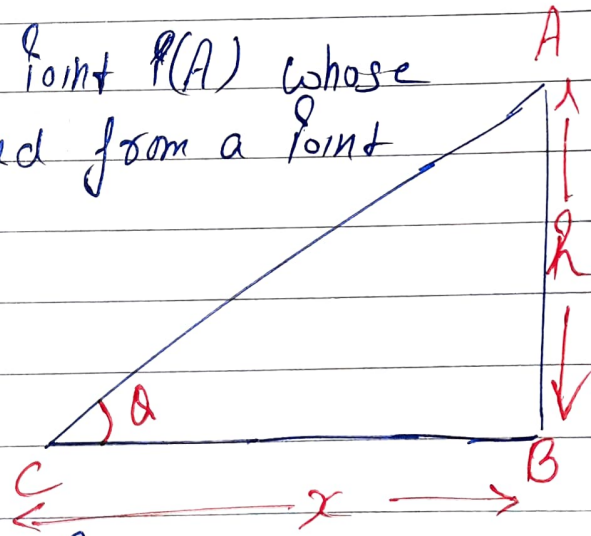 A
Point P(A) whose
ed from a Point
h
Q
C
B
x